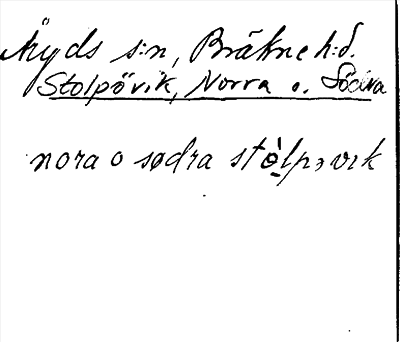 Åryds s:n, Bräkne h:d.
Stolpövik, Norra o. Södra
nora o sødra stò̱lpəvık